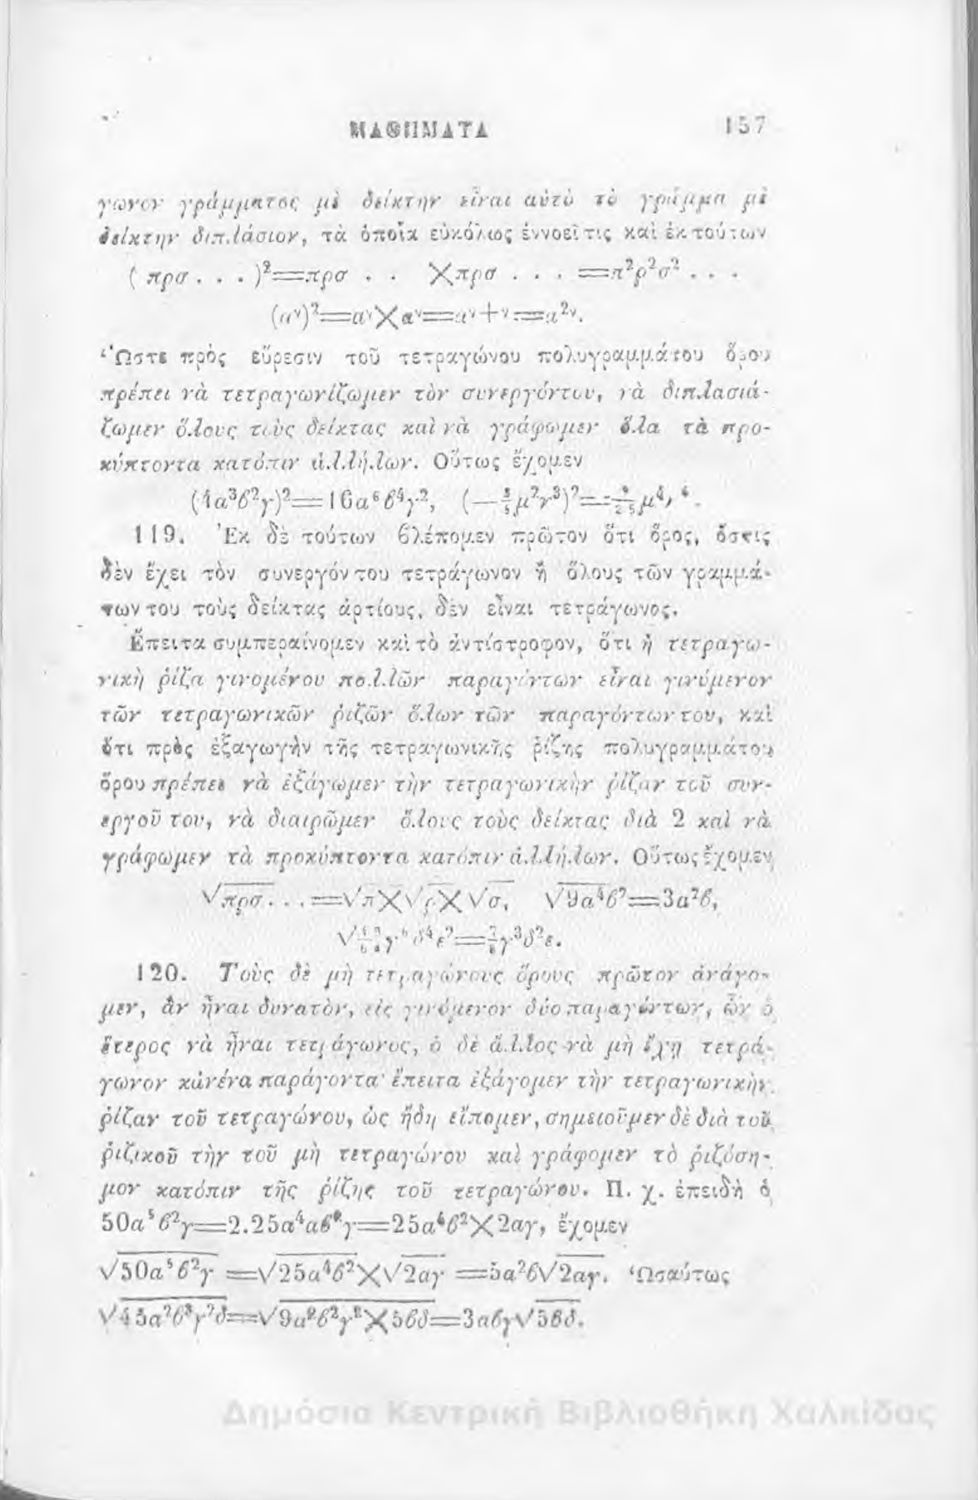 ΜΑΘΗΜΑΤΑ 157
γωνον γράμματος μὲ δείκτην εἶναι αὐτὸ τὸ γράμμα μὲ
δείκτην διπλάσιον, τὰ ὁποῖα εὐκόλως ἐννοεῖ τις καὶ ἐκ τούτων
( πρσ . . . )²=πρσ . . Χπρσ . . . =π²ρ²σ² . . .
(αᵛ)²=αᵛΧαᵛ=αᵛ+ᵛ=α²ᵛ.
Ὥστε πρὸς εὕρεσιν τοῦ τετραγώνου πολυγραμμάτου ὅρου
πρέπει νὰ τετραγωνίζωμεν τὸν συνεργόντου, νὰ διπλασιά-
ζωμεν ὅλους τοὺς δείκτας καὶ νὰ γράφωμεν ὅλα τὰ προ-
κύπτοντα κατόπιν ἀλλήλων. Οὕτως ἔχομεν
(4α³β²γ)²=16α⁶β⁴γ², (—
119. Ἐκ δὲ τούτων βλέπομεν πρῶτον ὅτι ὅρος, ὅστις
δὲν ἔχει τὸν συνεργόν του τετράγωνον ἢ ὅλους τῶν γραμμά-
των του τοὺς δείκτας ἀρτίους, δὲν εἶναι τετράγωνος.
Ἔπειτα συμπεραίνομεν καὶ τὸ ἀντίστροφον, ὅτι ἡ τετραγω-
νικὴ ῥίζα γινομένου πολλῶν παραγόντων εἶναι γινόμενον
τῶν τετραγωνικῶν ῥιζῶν ὅλων τῶν παραγόντων του, καὶ
ὅτι πρὸς ἐξαγωγὴν τῆς τετραγωνικῆς ῥίζης πολυγραμμάτου
ὅρου πρέπει νὰ ἐξάγωμεν τὴν τετραγωνικὴν ῥίζαν τοῦ συν-
εργοῦ του, νὰ διαιρῶμεν ὅλους τοὺς δείκτας διὰ 2 καὶ νὰ
γράφωμεν τὰ προκύπτοντα κατόπιν ἀλλήλων. Οὕτως ἔχομεν
√πρσ . . . =√πΧ√ρΧ√σ, √9α⁴β²=3α²β,
γ³δ²ε.
120. Τοὺς δὲ μὴ τετραγώνους ὅρους πρῶτον ἀνάγο-
μεν, ἂν ἦναι δυνατὸν, εἰς γινόμενον δύο παραγόντων, ὧν ὁ
ἕτερος νὰ ἦναι τετράγωνος, ὁ δὲ ἄλλος νὰ μὴ ἔχῃ τετρά-
γωνον κἀνένα παράγοντα· ἔπειτα ἐξάγομεν τὴν τετραγωνικὴν
ῥίζαν τοῦ τετραγώνου, ὡς ἤδη εἴπομεν, σημειοῦμεν δὲ διὰ τοῦ
ῥιζικοῦ τὴν τοῦ μὴ τετραγώνου καὶ γράφομεν τὸ ῥιζόση-
μον κατόπιν τῆς ῥίζης τοῦ τετραγώνου. Π. χ. ἐπειδὴ ὁ
50α⁵β²γ=2.25α⁴αβ²γ=25α⁴β²Χ2αγ, ἔχομεν
√50α⁵β²γ =√25α⁴β²Χ√2αγ =5α²β√2αγ. Ὡσαύτως
√45α²β³γ²δ=√9α²β²γ²Χ5βδ=3αβγ√5βδ.
Δημόσια Κεντρική Βιβλιοθήκη Χαλκίδας